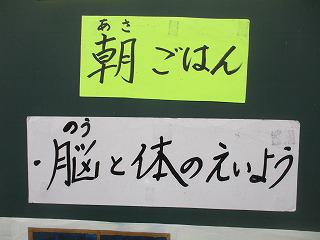 あさ
朝ごはん
のう
・脳と体のえいよう